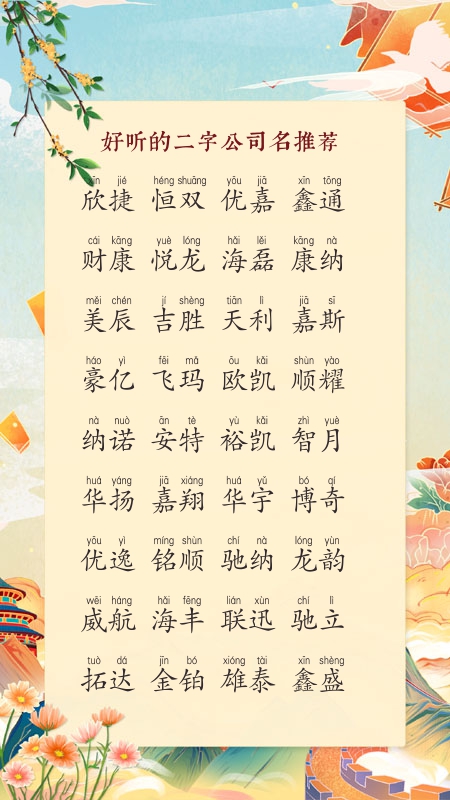 好听的二字公司名推荐
xīn jié héng shuāng yōu jiā xīn tōng
欣捷 恒双 优嘉 鑫通
cái kāng yuè lóng hǎi lěi kāng nà
财康 悦龙 海磊 康纳
měi chén jí shèng tiān lì jiā sī
美辰 吉胜 天利 嘉斯
háo yì fēi mǎ ōu kǎi shùn yào
豪亿 飞玛 欧凯 顺耀
nà nuò ān tè yù kǎi zhì yuè
纳诺 安特 裕凯 智月
huá yáng jiā xiáng huá yǔ bó qí
华扬 嘉翔 华宇 博奇
yōu yì míng shùn chí nà lóng yùn
优逸 铭顺 驰纳 龙韵
wēi háng hǎi fēng lián xùn chí lì
威航 海丰 联迅 驰立
tuò dá jīn bó xióng tài xīn shèng
拓达 金铂 雄泰 鑫盛